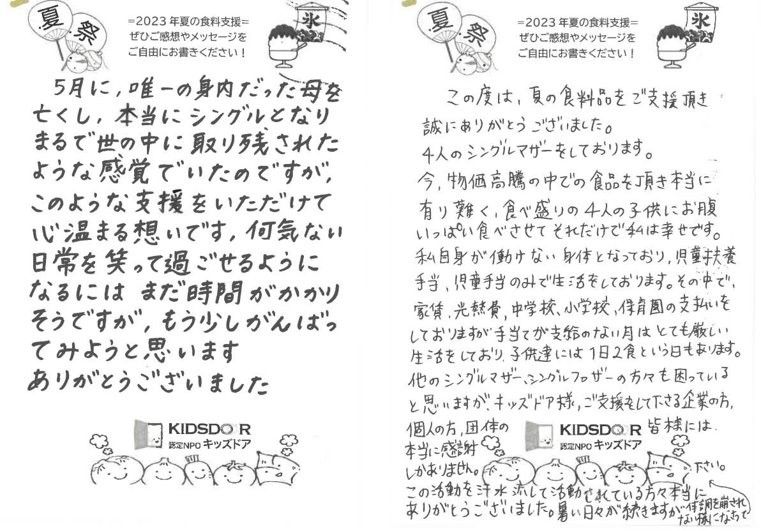 夏
祭
=2023年夏の食料支援=
ぜひご感想やメッセージを
ご自由にお書きください!
氷
5月に,唯一の身内だった母を
亡くし,本当にシングルとなり
まるで世の中に取り残された
ような感覚でいたのですが,
このような支援をいただけて
心温まる想いです,何気ない
日常を笑って過ごせるように
なるにはまだ時間がかかり
そうですが,もう少しがんばっ
てみようと思います
ありがとうございました
KIDSDOOR
認定NPO キッズドア
夏
祭
=2023年夏の食料支援=
ぜひご感想やメッセージを
ご自由にお書きください!
氷
この度は,夏の食料品をご支援頂き
誠にありがとうございました。
4人のシングルマザーをしております。
今,物価高騰の中での食品を頂き本当に
有り難く,食べ盛りの4人の子供にお腹
いっぱい食べさせてそれだけで私は幸せです。
私自身が働けない身体となっており,児童扶養
手当,児童手当のみで生活をしております。その中で,
家賃,光熱費,中学校,小学校,保育園の支払いを
しておりますが手当てが支給のない月はとても厳しい
生活をしており,子供達には1日2食という日もあります。
他のシングルマザー,シングルファザーの方々も困っている
と思いますが,キッズドア様,ご支援をして下さる企業の方,
個人の方,団体の皆様には
本当に感謝
しかありません。
この活動を汗水流して活動されている方々本当に
ありがとうございました。暑い日々が続きますが体調を崩され
ない様になさって
下さい。
KIDSDOOR
認定NPO キッズドア